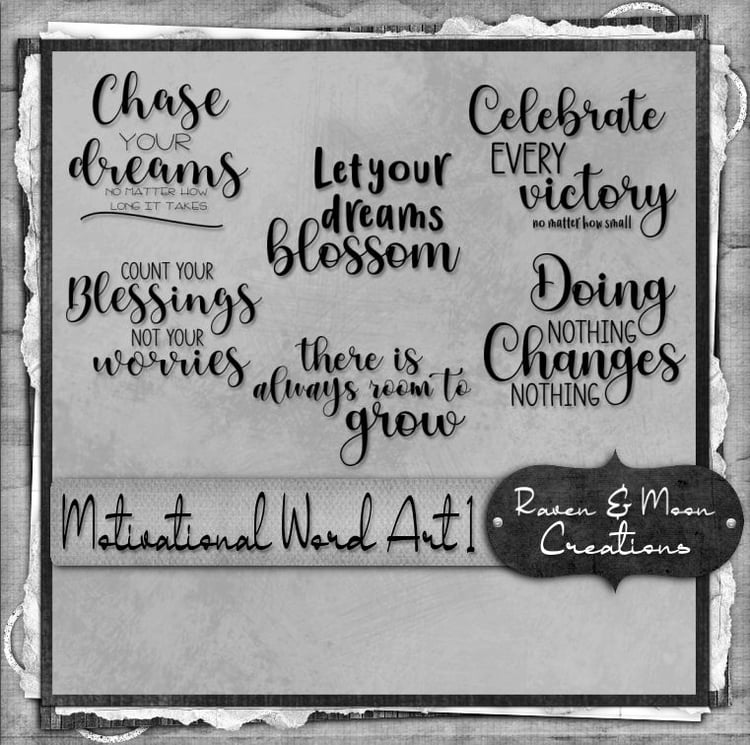 Chase
YOUR
dreams
NO MATTER HOW
LONG IT TAKES
Let your
dreams
blossom
Celebrate
EVERY
victory
no matter how small
COUNT YOUR
Blessings
NOT YOUR
worries
there is
always room to
grow
Doing
NOTHING
Changes
NOTHING
Motivational Word Art 1
Raven & Moon
Creations